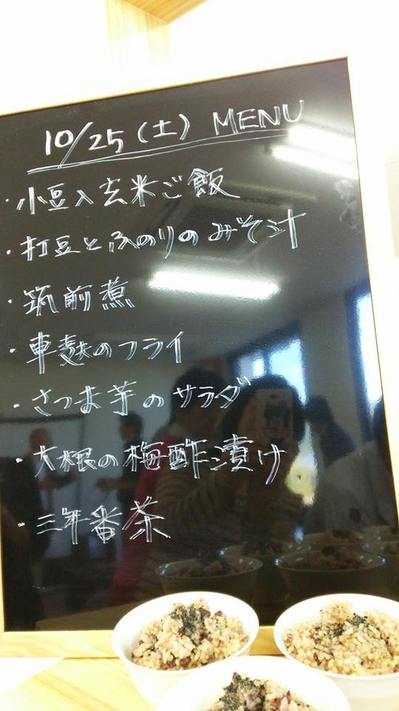 10/25(土) MENU
・小豆入玄米ご飯
・打豆とふのりのみそ汁
・筑前煮
・車麩のフライ
・さつま芋のサラダ
・大根の梅酢漬け
・三年番茶